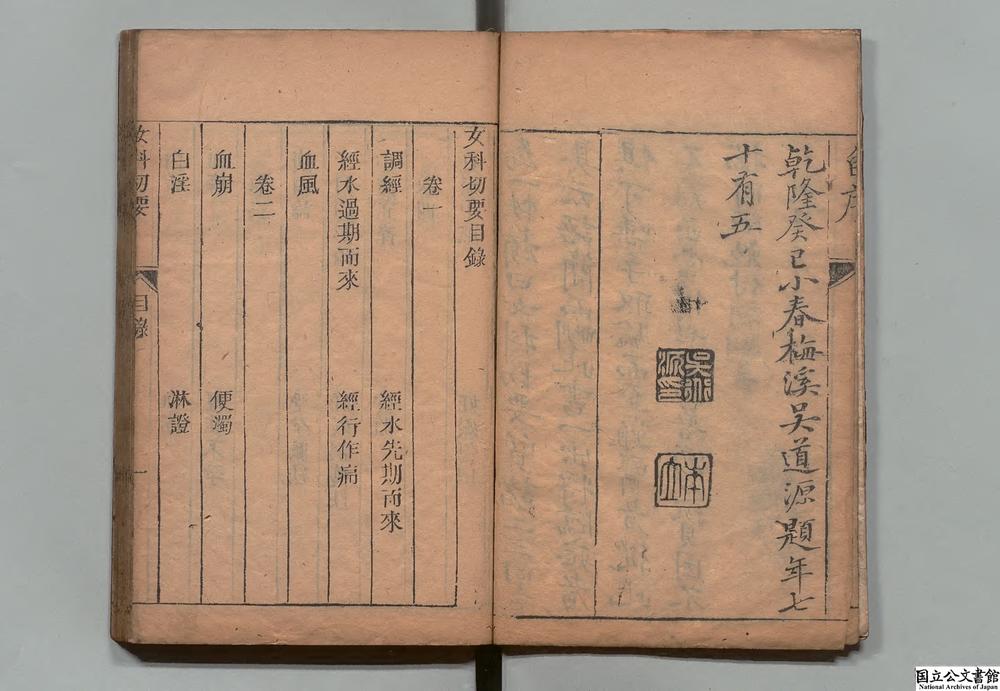 自序
乾隆癸巳小春梅溪吳道源題年七
十有五
女科切要目錄
卷一
調經
經水先期而來
經水過期而來
經行作痛
血風
卷二
血崩
便濁
白淫
淋證
女科切要
目錄
一
国立公文書館
National Archives of Japan